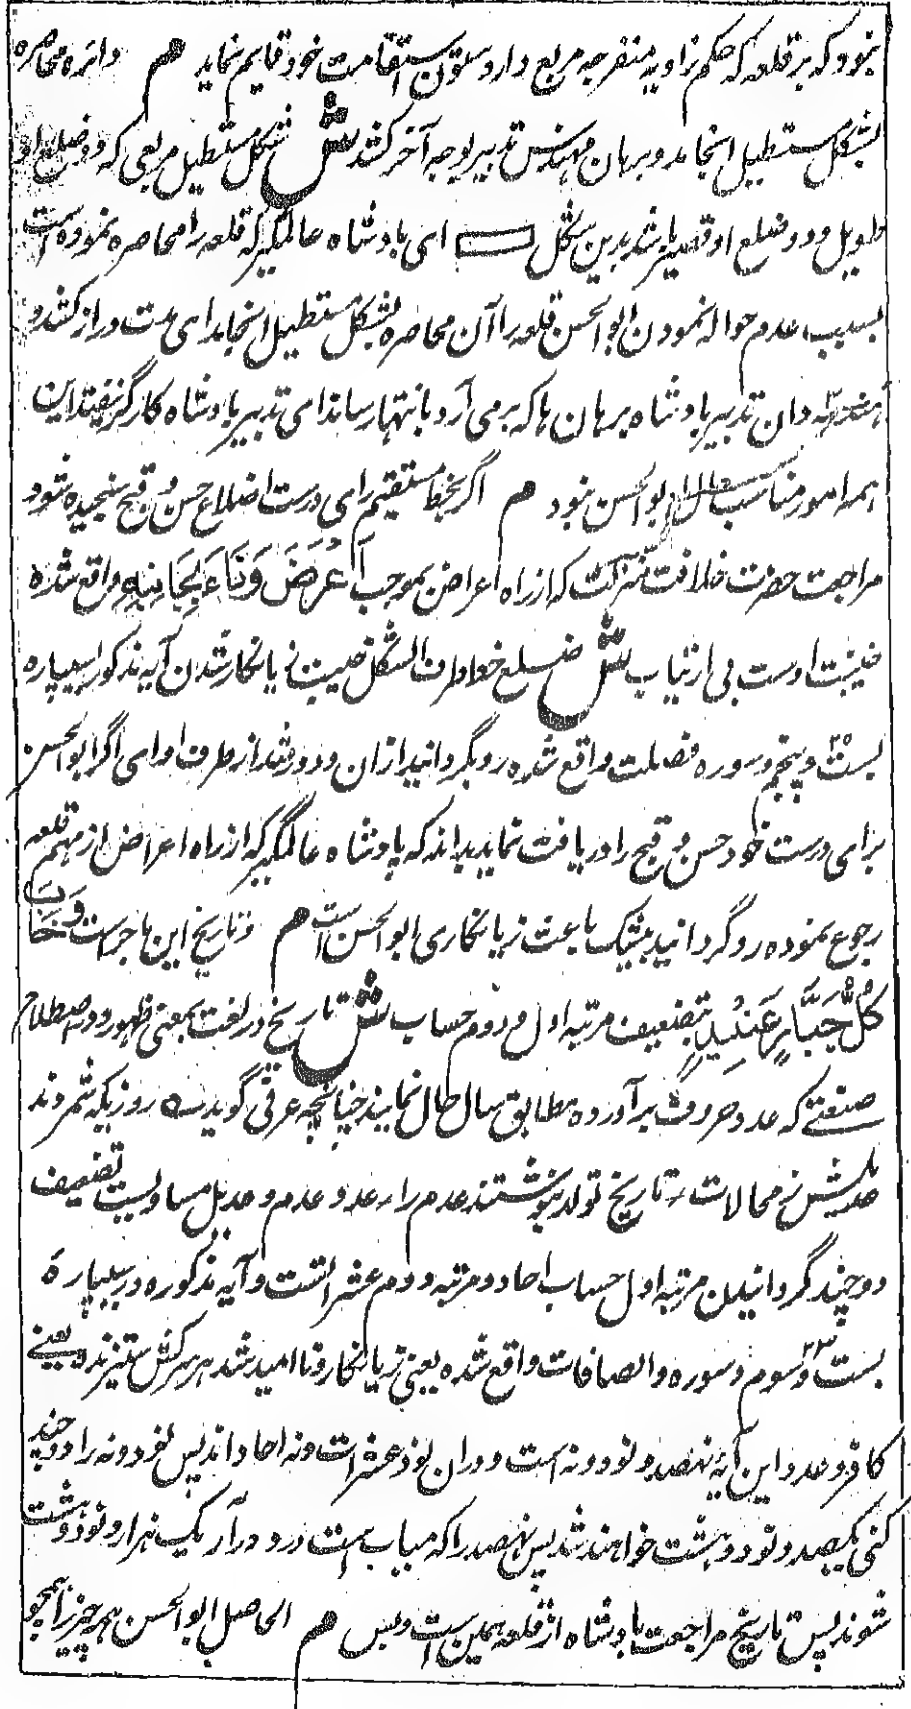 نبود که بر قلعه که حکم زاویهٔ منفرجه مربع دارد ستون استقامت خود قایم نماید م دائره محاصره
بشکل مستطیل انجامد و برهان مهندس تدبیر بوجه آخر کشد ش شکل مستطیل مربعی که دو ضلع او
طویل و دو ضلع او قصیر باشد بدین شکل ای بادشاه عالمگیر که قلعه را محاصره نموده است
بسبب عدم حواله نمودن ابوالحسن قلعه را آن محاصره بشکل مستطیل انجامد ای مدت دراز کشد و
مهندسه دان تدبیر بادشاه برهان ها که برمی آرد بانتها رساند ای تدبیر بادشاه کارگر نیفتد این
همه امور مناسب حال ابوالحسن نبود م اگر بخط مستقیم رای درست اضلاع حسن و قبح سنجیده شود
مراجعت حضرت خلافت منزلت که از راه اعراض بموجب اَعْرَضَ وَنَاءَ بِجَانِبِهِ واقع شده
خیبت اوست بی ارتیاب ش ضلع خط اطراف الشکل خیبت زیانکار شدن آیه مذکور سیپاره
بست و پنجم و سوره فصلت واقع شده روبگردانید ازان و دور شد از طرف او ای اگر ابوالحسن
برای درست خود حسن و قبح را دریافت نماید بداند که پادشاه عالمگیر که از راه اعراض از مهم قلعه
رجوع نموده روگردانید بیشک باعث زیانکاری ابوالحسن است م و تاریخ این ماجراست وَخَابَ
كُلُّ جَبَّارٍ عَنِيْدٍ بتضعیف مرتبه اول و دوم حساب ش تاریخ در لغت بمعنی ظهور و در اصطلاح
صنعتی که عدد حروف برآورده مطابق سال حال نمایند چنانچه عرفی گوید ؎ روزیکه شمردند
عدیلش ز محالات ٭ تاریخ تولد بنوشتند عدم را ٭ عدد عدم و عدیل مساویست تضعیف
دو چند گردانیدن مرتبه اول حساب احاد و مرتبه دوم عشرات است و آیه مذکوره در سیپارهٔ
بست و سوم ۲۳ و سوره والصافات واقع شده یعنی زیانکار و ناامید شد هر سرکش ستیزنده یعنے
کافر و عدد این آیه نهصد و نود و نه است و دران نود عشرات و نه احاد اند پس نود و نه را دو چند
کنی یکصد و نود و هشت خواهند شد پس نهصد را که میات است درو درآر یک هزار و نود و هشت
شوند پس تاریخ مراجعت بادشاه از قلعه همین است و بس م الحاصل ابوالحسن هر چیز را همچو